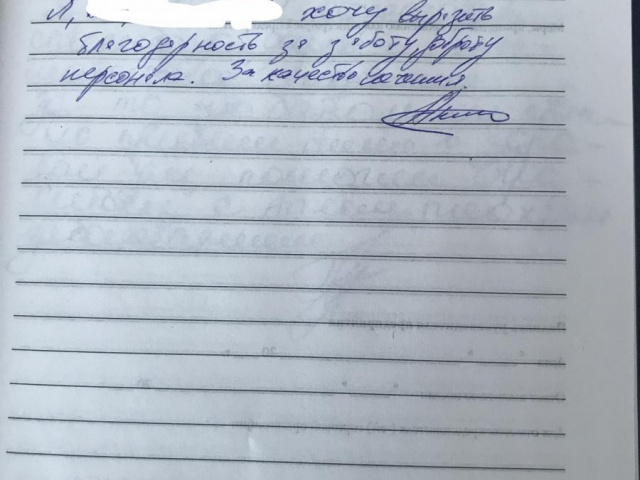 Я, хочу выразить
благодарность за заботу, доброту
персонала. За качество лечения.